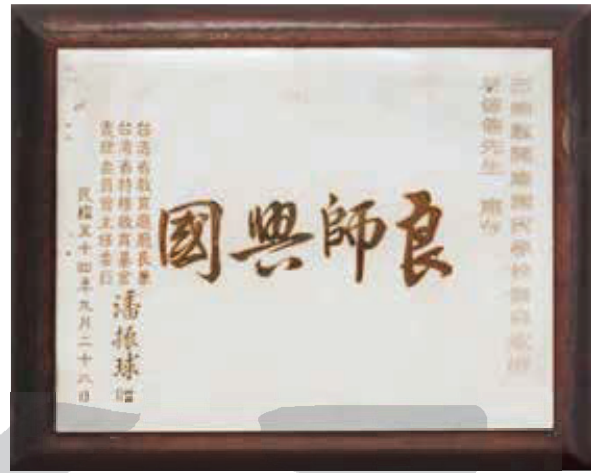 先生 惠存
良師興國
台灣省教育廳廳長兼
台灣省特種教育基金
管理委員會主任委員
潘振球 贈
民國五十四年九月二十八日